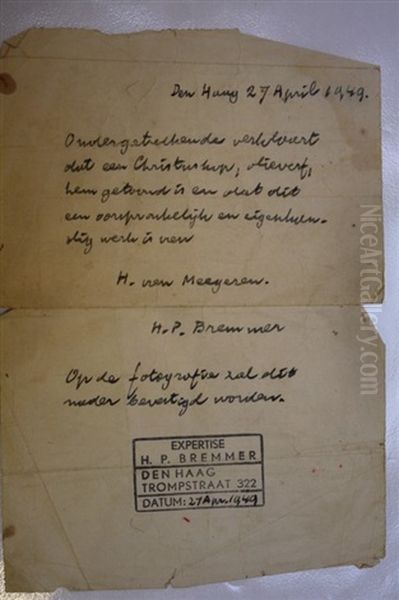 Den Haag 27 April 1949.
Ondergetekende verklaart
dat een Christuskop, olieverf,
hem getoond is en dat dit
een oorspronkelijk en eigenhan-
dig werk is van
H. van Meegeren.
H.P. Bremmer
Op de fotografie zal dit
nader bevestigd worden.
EXPERTISE
H. P. BREMMER
DEN HAAG
TROMPSTRAAT 322
DATUM: 27 Apr. 1949
NiceArtGallery.com